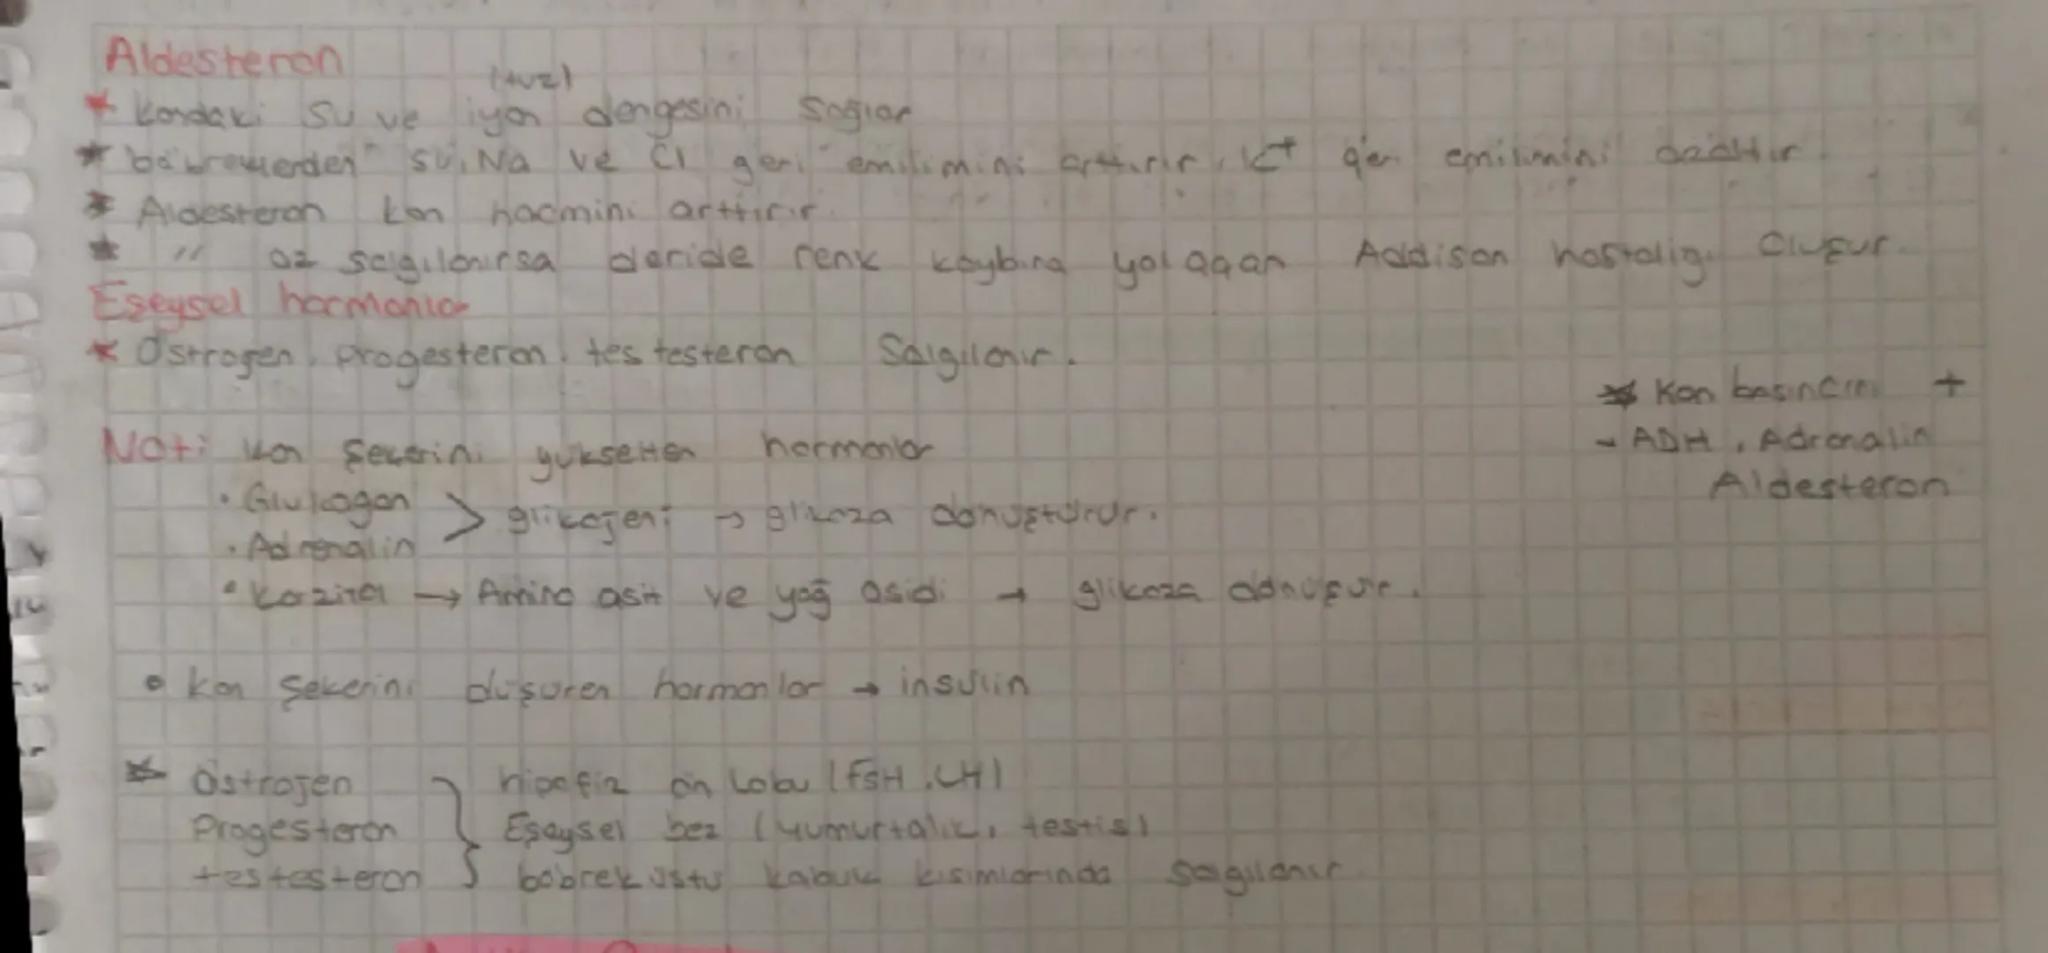 Aldesteron
(tuz)
* Kandaki su ve iyon dengesini sağlar
* böbreklerden su, Na ve Cl geri emilimini arttırır, K+ geri emilimini azaltır
* Aldesteron kan hacmini arttırır.
* " az salgılanırsa deride renk kaybına yol açan Addison hastalığı oluşur.
Eşeysel hormonlar
* Östrogen, progesteron, testesteron salgılanır.
* Kan basıncını +
Not: kan şekerini yükselten hormonlar
- ADH, Adrenalin
Aldesteron
• Glukagon > glikojeni → glikoza dönüştürür.
• Adrenalin
• Kortizol → Amino asit ve yağ asidi → glikoza dönüşür.
• Kan şekerini düşüren hormonlar → insülin
* Östrojen } hipofiz ön lobu (FSH, LH)
Progesteron Eşeysel bez (yumurtalık, testis)
testesteron böbrek üstü kabuk kısımlarında salgılanır